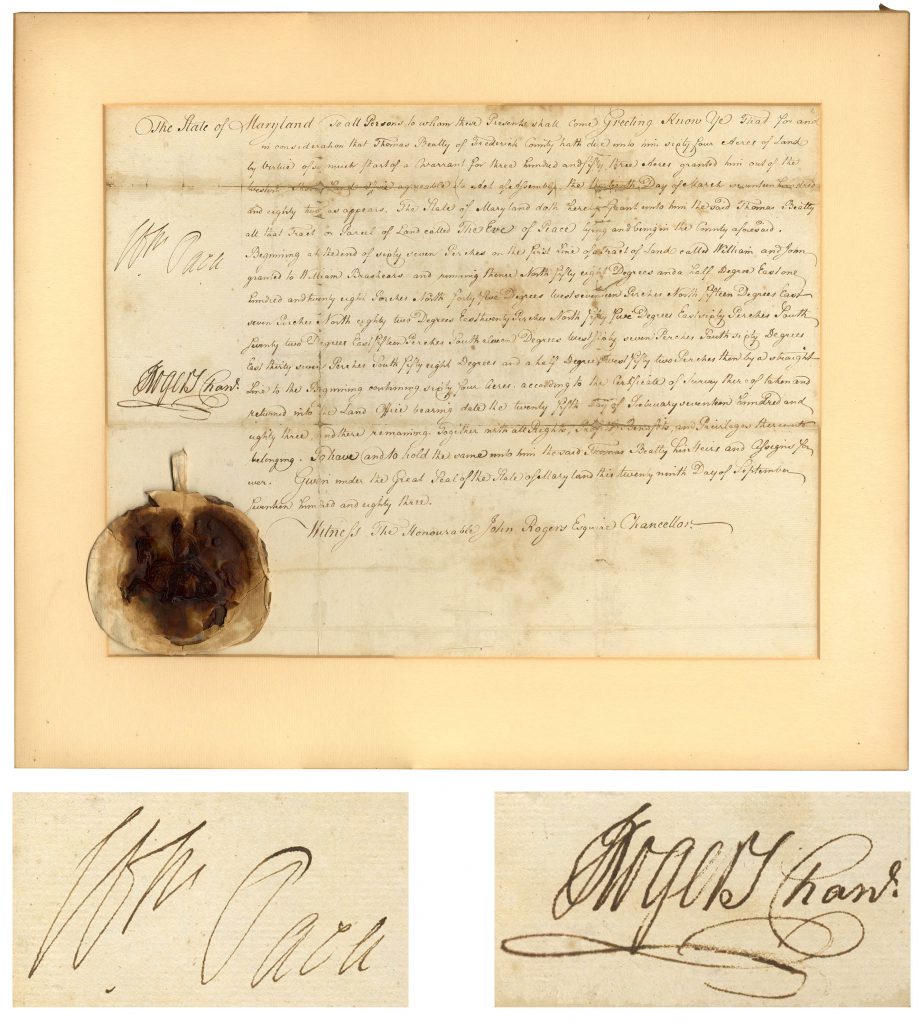 The State of Maryland To all Persons to whom these Presents shall come Greeting Know Ye That for and
in consideration that Thomas Beatty of Frederick County hath due unto him sixty four Acres of Land
by Virtue of so much part of a Warrant for three hundred and fifty three Acres granted him out of the
Western agreeable to Act of Assembly the Day of March seventeen hundred
and eighty two as appears. The State of Maryland doth hereby Grant unto him the said Thomas Beatty
all that Tract or Parcel of Land called The Eve of Peace lying and being in the County aforesaid.
Beginning at the end of sixty seven Perches on the first line of a Tract of Land called William and John
granted to William Brashears and running thence North fifty eight Degrees and a half Degree East one
hundred and twenty eight Perches North forty five Degrees West seventeen Perches North fifteen Degrees East
seven Perches North eighty two Degrees East twenty Perches North fifty five Degrees East sixty Perches South
seventy two Degrees East fifteen Perches South eleven Degrees West sixty seven Perches South sixty Degrees
East thirty seven Perches South fifty eight Degrees and a half Degree West fifty two Perches then by a straight
Line to the Beginning containing sixty four Acres. according to the Certificate of Survey thereof taken and
returned into the Land Office bearing date the twenty fifth Day of February seventeen hundred and
eighty three, and there remaining Together with all Rights, Benefits, and Privileges thereunto
belonging. To have and to hold the same unto him the said Thomas Beatty his Heirs and Assigns for
ever. Given under the Great Seal of the State of Maryland this twenty ninth Day of September
seventeen hundred and eighty three.
Witness The Honourable John Rogers Esquire Chancellor.
Wm. Paca
JRogers Chanr.
Wm. Paca
JRogers Chanr.